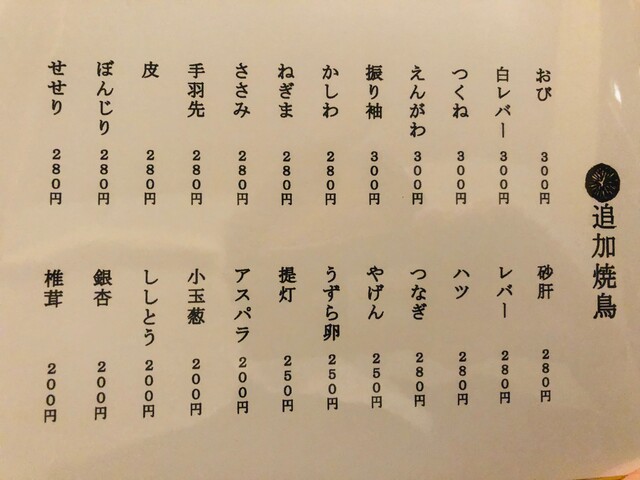 追加焼鳥
おび 300円
白レバー 300円
つくね 300円
えんがわ 300円
振り袖 300円
かしわ 280円
ねぎま 280円
ささみ 280円
手羽先 280円
皮 280円
ぼんじり 280円
せせり 280円
砂肝 280円
レバー 280円
ハツ 280円
つなぎ 280円
やげん 250円
うずら卵 250円
提灯 250円
アスパラ 200円
小玉葱 200円
ししとう 200円
銀杏 200円
椎茸 200円